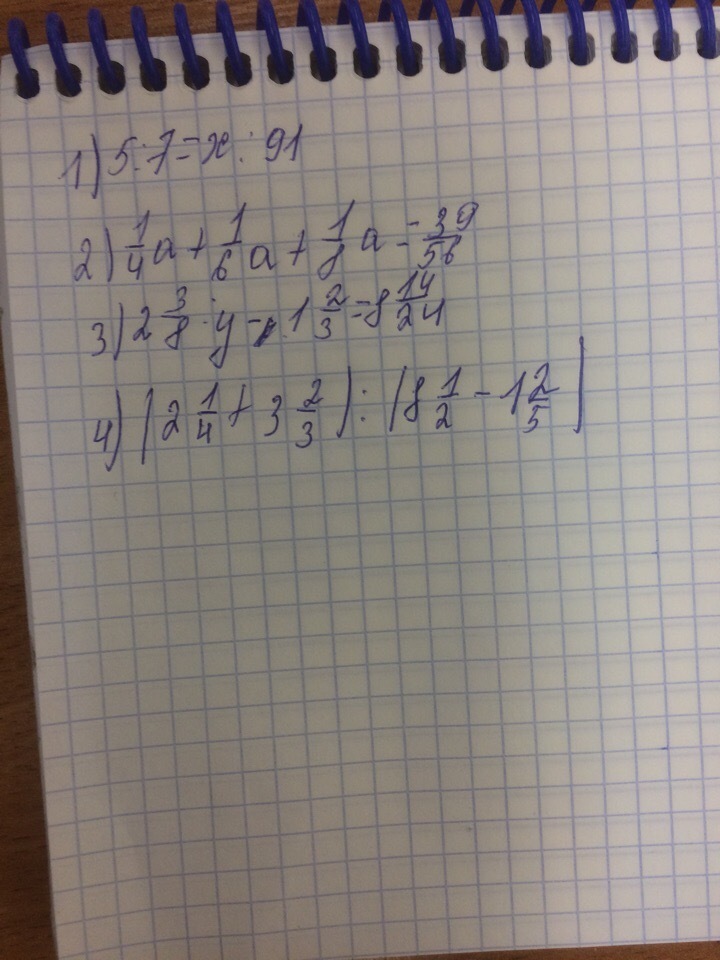 1) 5:7=x:91
2) 1/4 a + 1/6 a + 1/8 a = 39/56
3) 2 3/8 : y - 1 2/3 = 8 14/24
4) (2 1/4 + 3 2/3) : (8 1/2 - 1 2/5)